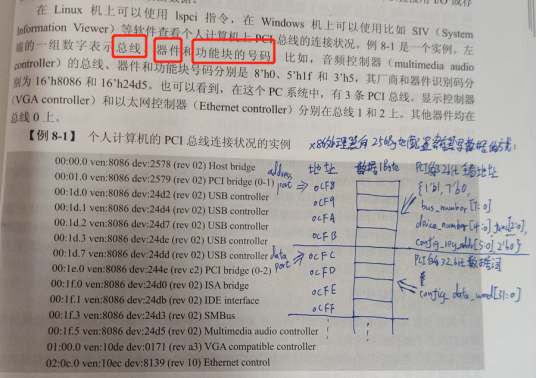 在 Linux 机上可以使用 lspci 指令，在 Windows 机上可以使用比如 SIV（System
Information Viewer）等软件查看个人计算机上 PCI 总线的连接状况。例 8-1 是一个实例。左
端的一组数字表示总线、器件和功能块的号码。比如，音频控制器（multimedia audio
controller）的总线、器件和功能块号码分别是 8'h0、5'h1f 和 3'h5，其厂商和器件识别码分
别为 16'h8086 和 16'h24d5。也可以看到，在这个 PC 系统中，有 3 条 PCI 总线。显示控制器
（VGA controller）和以太网控制器（Ethernet controller）分别在总线 1 和 2 上。其他器件均在
总线 0 上。
【例 8-1】 个人计算机的 PCI 总线连接状况的实例
00:00.0 ven:8086 dev:2578 (rev 02) Host bridge
00:01.0 ven:8086 dev:2579 (rev 02) PCI bridge (0-1)
00:1d.0 ven:8086 dev:24d2 (rev 02) USB controller
00:1d.1 ven:8086 dev:24d4 (rev 02) USB controller
00:1d.2 ven:8086 dev:24d7 (rev 02) USB controller
00:1d.3 ven:8086 dev:24de (rev 02) USB controller
00:1d.7 ven:8086 dev:24dd (rev 02) USB controller
00:1e.0 ven:8086 dev:244e (rev c2) PCI bridge (0-2)
00:1f.0 ven:8086 dev:24d0 (rev 02) ISA bridge
00:1f.1 ven:8086 dev:24db (rev 02) IDE interface
00:1f.3 ven:8086 dev:24d3 (rev 02) SMBus
00:1f.5 ven:8086 dev:24d5 (rev 02) Multimedia audio controller
01:00.0 ven:10de dev:0171 (rev a3) VGA compatible controller
02:0c.0 ven:10ec dev:8139 (rev 10) Ethernet control
x86处理器的256By
读写数据的方式:
address
port
地址
数据1Byte
0CF8
0CF9
0CFA
0CFB
data
port
0CFC
0CFD
0CFE
0CFF
PCI的32bit
地址
{1'b1, 7'b0,
bus_number[7:0]
device_number[4:0], func[2:0],
config_reg_addr[5:0], 2'b0}
PCI的32bit数据
config_data_word[31:0]